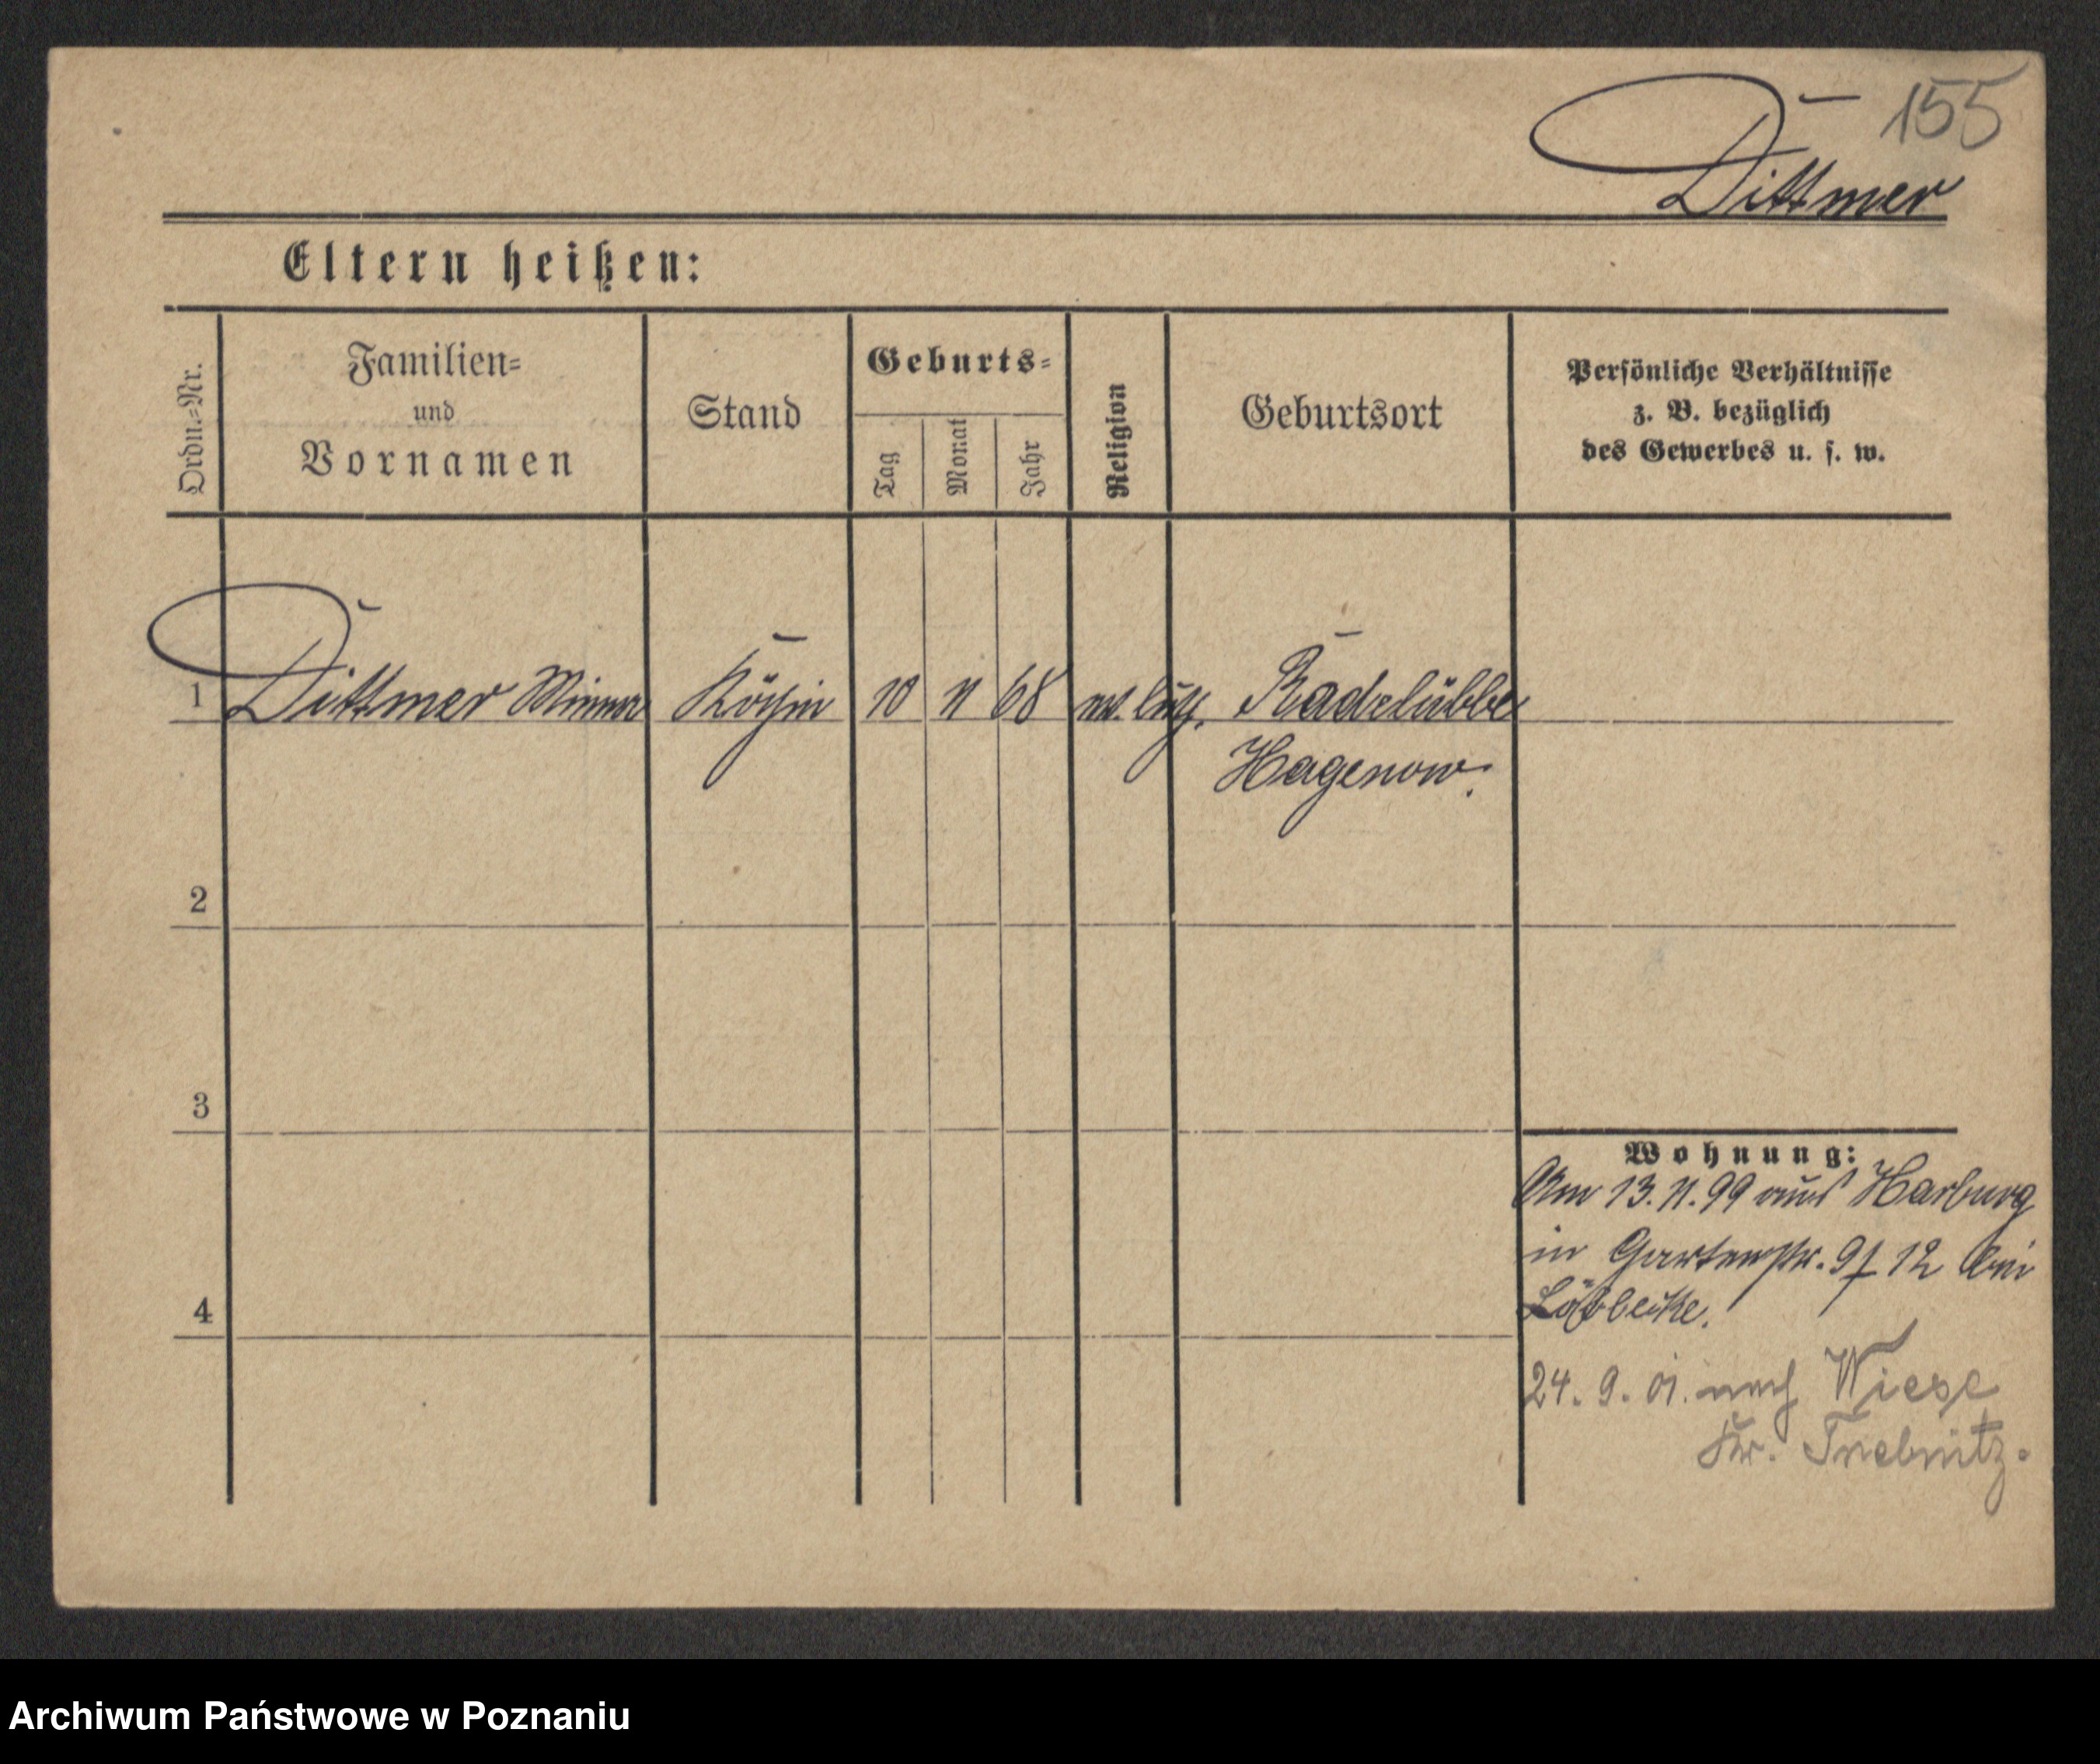 155
Dittmer
Eltern heißen:
Ordn.=Nr.
Familien=
und
Vornamen
Stand
Geburts=
Tag
Monat
Jahr
Religion
Geburtsort
Persönliche Verhältnisse
z. B. bezüglich
des Gewerbes u. s. w.
1 Dittmer Minna Köchin 10 11 68 ev. luth. Radelübbe
Hagenow.
2
3
Wohnung:
Am 13.11.99 aus Harburg
in Gartenstr. 9/12 bei
Löbbecke.
4
24. 9. 01. nach Wiese
Kr. Trebnitz.
Archiwum Państwowe w Poznaniu